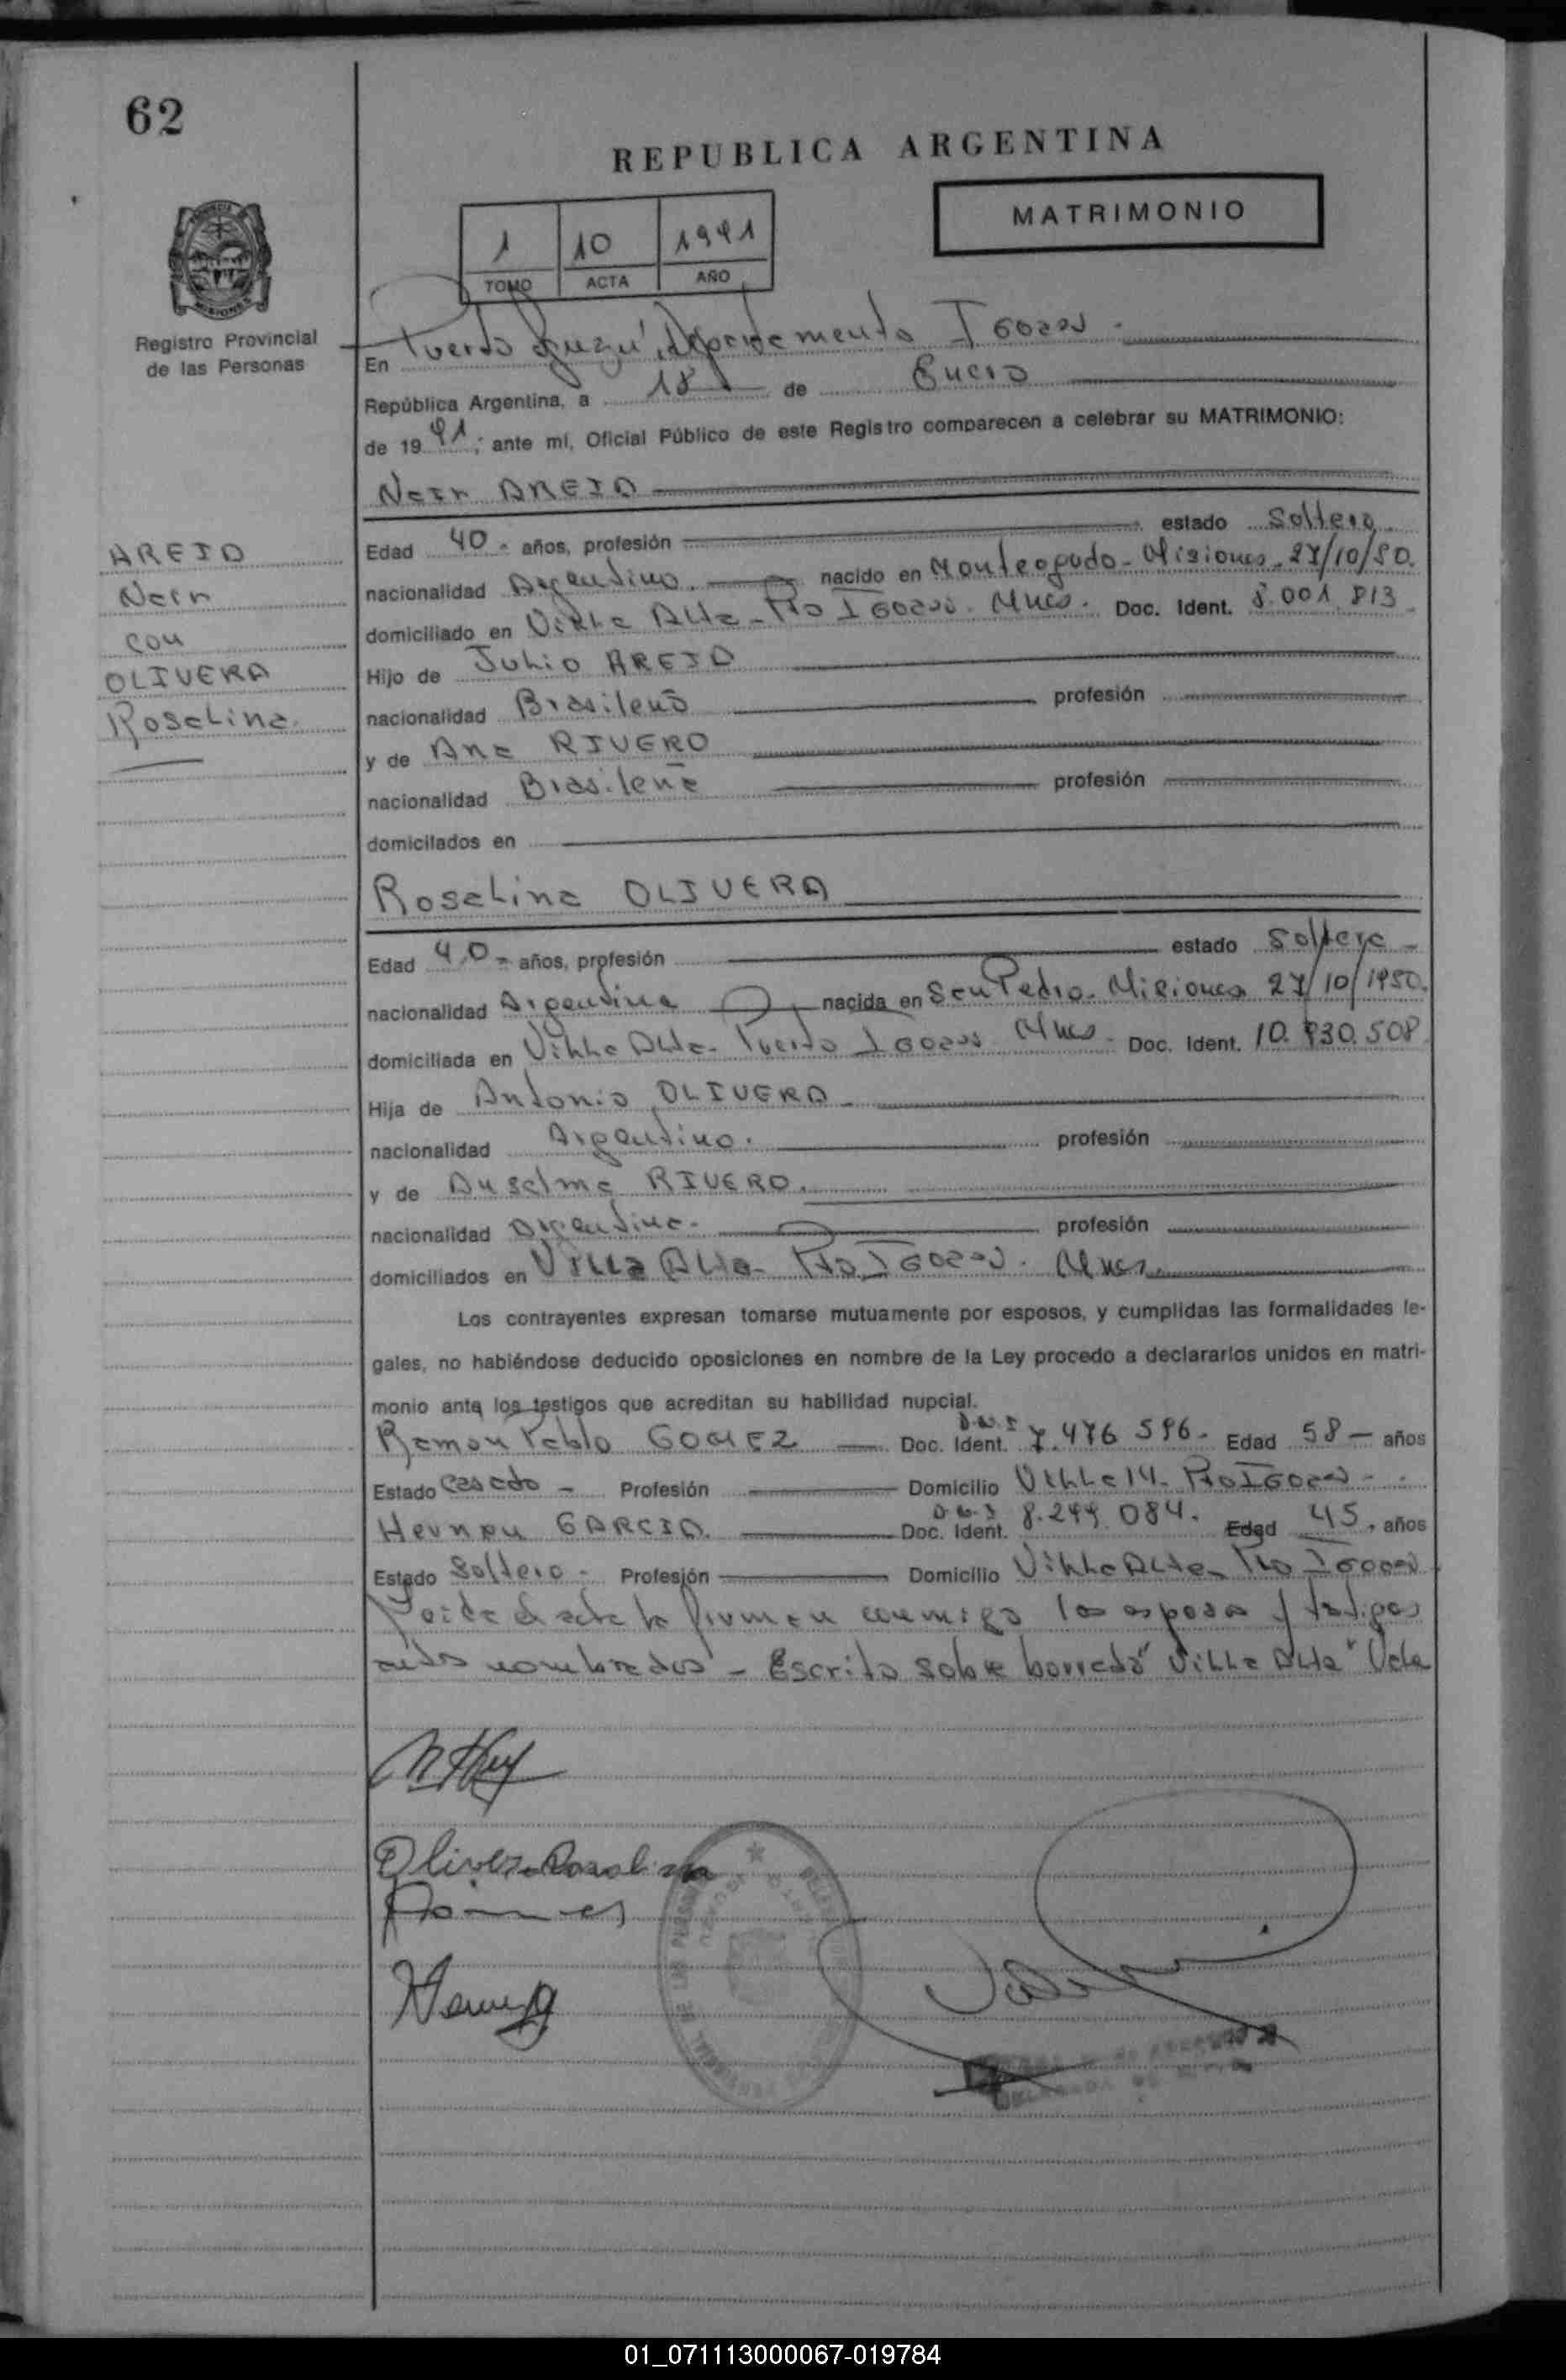 62
REPUBLICA ARGENTINA
MATRIMONIO
1 10 1991
TOMO ACTA AÑO
Registro Provincial
de las Personas
En Puerto Iguazú, departamento IGUAZU.
República Argentina, a 18 de Enero
de 19 91; ante mí, Oficial Público de este Registro comparecen a celebrar su MATRIMONIO:
Nair AREJO
AREJO
Nair
con
OLIVERA
Roselina.
Edad 40 - años, profesión estado Soltero
nacionalidad Argentino nacido en Monteagudo - Misiones - 27/10/50.
domiciliado en Villa Alta - Pto IGUAZU. Mnes. Doc. Ident. 8.001.813
Hijo de Julio AREJO
nacionalidad Brasileño profesión
y de Ana RIVERO
nacionalidad Brasileña profesión
domicilados en
Roselina OLIVERA
Edad 40 - años, profesión estado Soltera -
nacionalidad Argentina nacida en San Pedro - Misiones 27/10/1950.
domiciliada en Villa Alta - Puerto IGUAZU Mnes - Doc. Ident. 10.830.508
Hija de Antonio OLIVERA
nacionalidad Argentino. profesión
y de Anselma RIVERO.
nacionalidad Argentina. profesión
domiciliados en Villa Alta - Pto IGUAZU. Mnes.
Los contrayentes expresan tomarse mutuamente por esposos, y cumplidas las formalidades le-
gales, no habiéndose deducido oposiciones en nombre de la Ley procedo a declararlos unidos en matri-
monio ante los testigos que acreditan su habilidad nupcial.
Ramon Pablo GOMEZ Doc. Ident. D.N.I 7.476 596 - Edad 58 - años
Estado Casado - Profesión Domicilio Villa 14 - Pto IGUAZU -
Hernan GARCIA. Doc. Ident. D.N.I 8.299.084. Edad 45, años
Estado Soltero - Profesión Domicilio Villa Alta - Pto IGUAZU
Leida el acta la firman conmigo los esposos y testigos
antes nombrados - Escrito sobre borrado "Villa Alta" Vale
Olivera Roselina
01_071113000067-019784